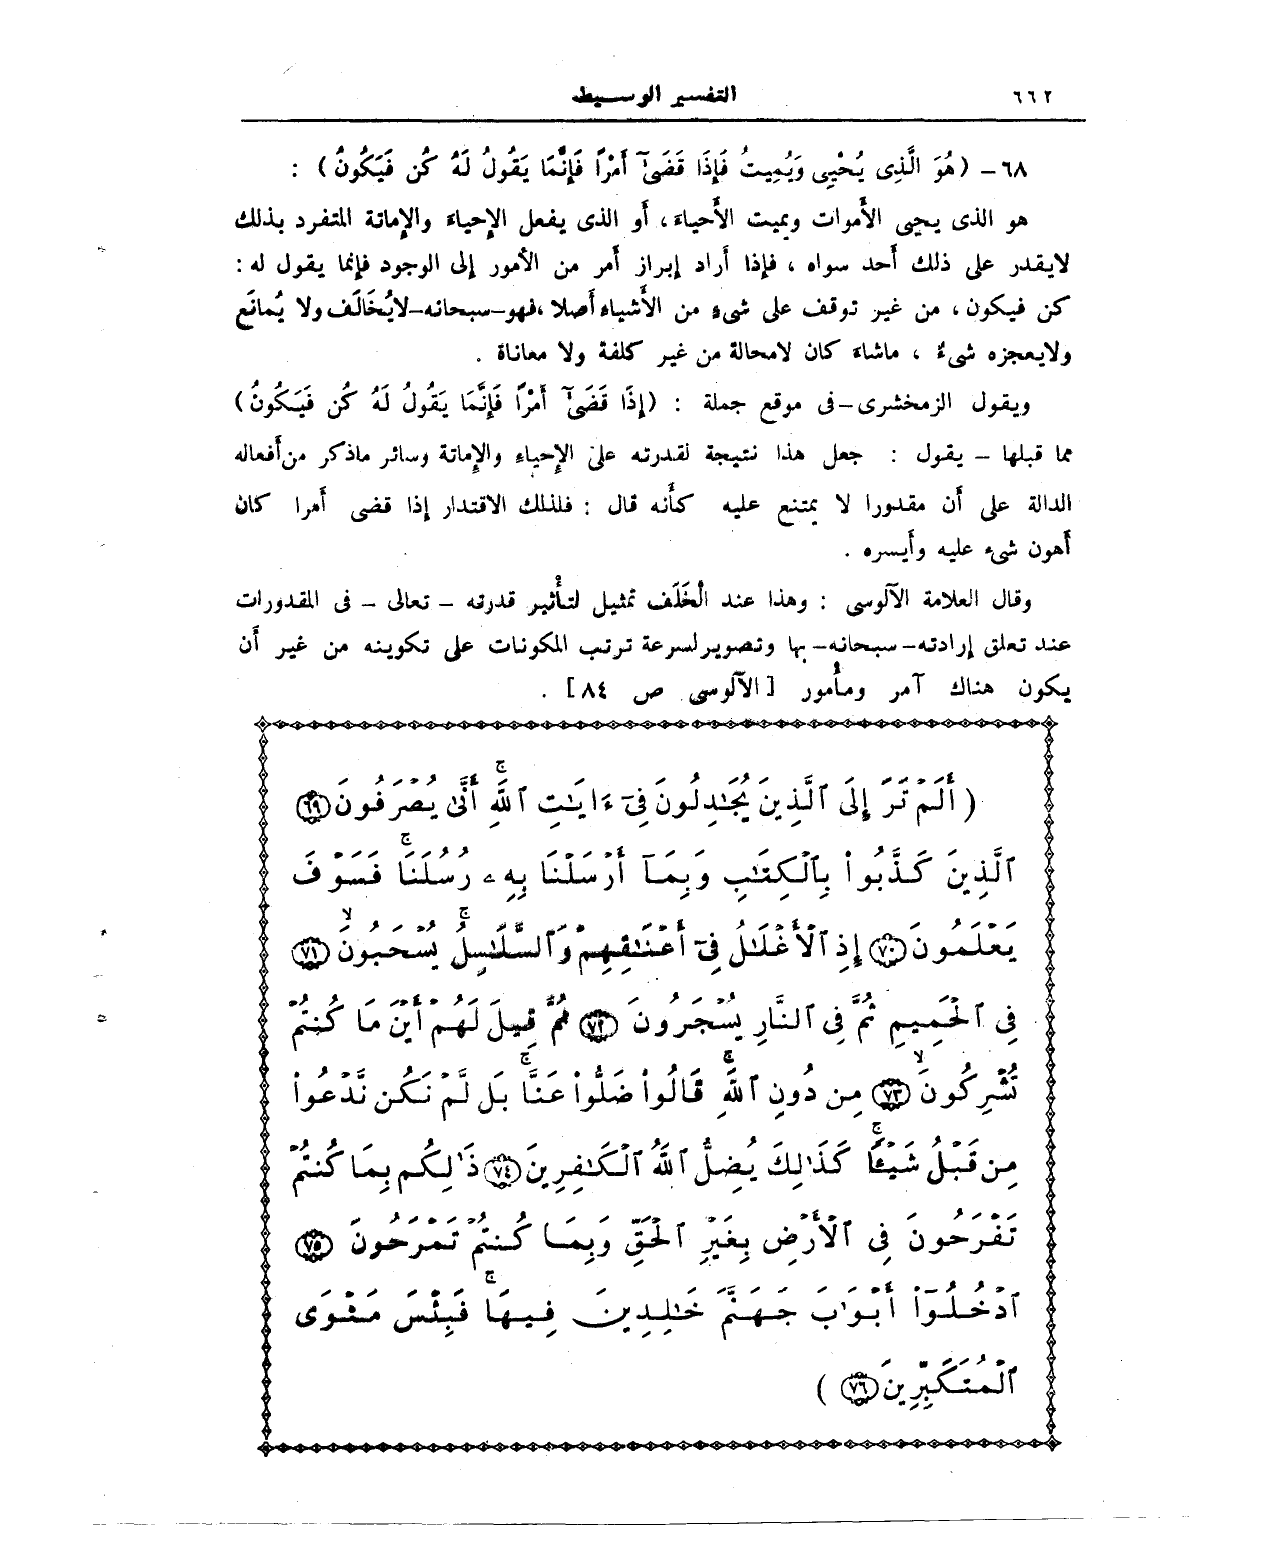 ٦٦٢
التفسير الوسيط
٦٨ - (هُوَ الَّذِى يُحْيِى وَيُمِيتُ فَإِذَا قَضَىٰٓ أَمْرًا فَإِنَّمَا يَقُولُ لَهُ كُن فَيَكُونُ) :
هو الذى يحيى الأموات ويميت الأحياء، أو الذى يفعل الإحياء والإماتة المتفرد بذلك
لايقدر على ذلك أحد سواه ، فإذا أراد إبراز أمر من الأمور إلى الوجود فإنما يقول له :
كن فيكون، من غير توقف على شىء من الأشياء أصلا ،فهو-سبحانه-لايُخَالَف ولا يُمانَع
ولايعجزه شىءٌ ، ماشاء كان لامحالة من غير كلفة ولا معاناة .
ويقول الزمخشرى-فى موقع جملة : (إِذَا قَضَىٰٓ أَمْرًا فَإِنَّمَا يَقُولُ لَهُ كُن فَيَكُونُ)
مما قبلها - يقول : جعل هذا نتيجة لقدرته على الإحياء والإماتة وسائر ماذكر من أفعاله
الدالة على أن مقدورا لا يمتنع عليه كأنه قال : فلذلك الاقتدار إذا قضى أمرا كان
أهون شىء عليه وأيسره .
وقال العلامة الآلوسى : وهذا عند الْخَلَف تمثيل لتأثير قدرته - تعالى - فى المقدورات
عند تعلق إرادته- سبحانه- بها وتصوير لسرعة ترتب المكونات على تكوينه من غير أن
يكون هناك آمر ومأمور [الآلوسى ص ٨٤] .
(أَلَمْ تَرَ إِلَى ٱلَّذِينَ يُجَٰدِلُونَ فِىٓ ءَايَٰتِ ٱللَّهِۚ أَنَّىٰ يُصْرَفُونَ ٦٩
ٱلَّذِينَ كَذَّبُوا۟ بِٱلْكِتَٰبِ وَبِمَآ أَرْسَلْنَا بِهِۦ رُسُلَنَاۚ فَسَوْفَ
يَعْلَمُونَ ٧٠ إِذِ ٱلْأَغْلَٰلُ فِىٓ أَعْنَٰقِهِمْ وَٱلسَّلَٰسِلُۚ يُسْحَبُونَۙ ٧١
فِى ٱلْحَمِيمِ ثُمَّ فِى ٱلنَّارِ يُسْجَرُونَ ٧٢ ثُمَّ قِيلَ لَهُمْ أَيْنَ مَا كُنتُمْ
تُشْرِكُونَۙ ٧٣ مِن دُونِ ٱللَّهِۚ قَالُوا۟ ضَلُّوا۟ عَنَّاۚ بَل لَّمْ نَكُن نَّدْعُوا۟
مِن قَبْلُ شَيْـًٔاۚ كَذَٰلِكَ يُضِلُّ ٱللَّهُ ٱلْكَٰفِرِينَ ٧٤ ذَٰلِكُم بِمَا كُنتُمْ
تَفْرَحُونَ فِى ٱلْأَرْضِ بِغَيْرِ ٱلْحَقِّ وَبِمَا كُنتُمْ تَمْرَحُونَ ٧٥
ٱدْخُلُوٓا۟ أَبْوَٰبَ جَهَنَّمَ خَٰلِدِينَ فِيهَاۚ فَبِئْسَ مَثْوَى
ٱلْمُتَكَبِّرِينَ ٧٦ )